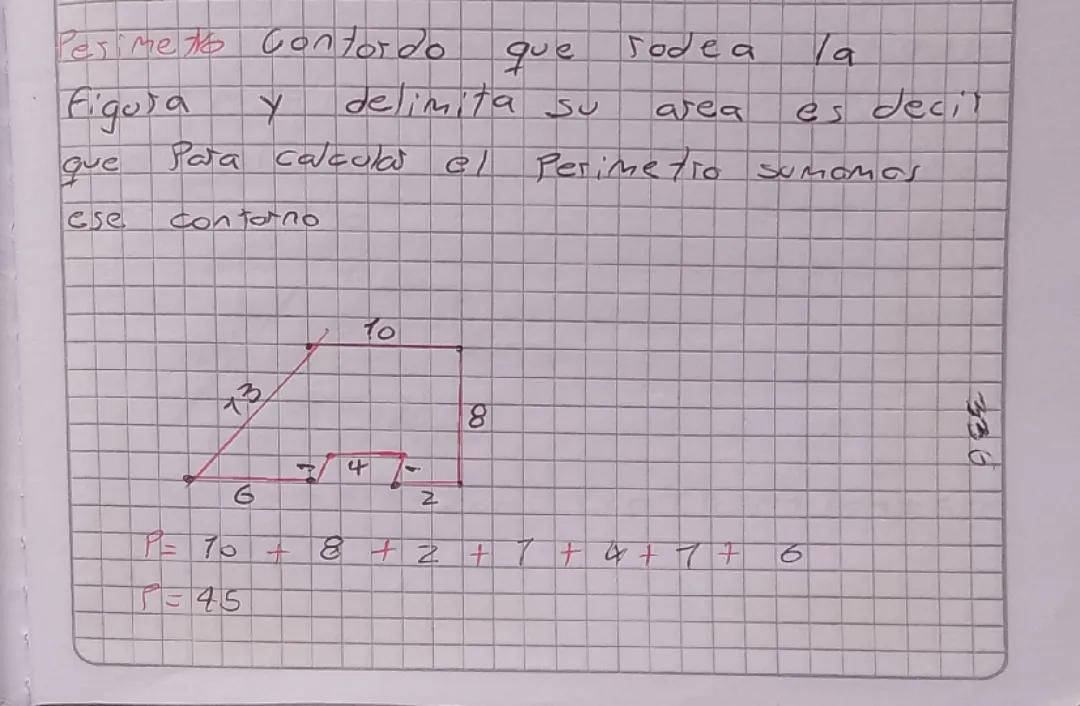 Perimetro Contordo que rodea la
figura y delimita su area es decir
que Para calcular el Perimetro sumamos
ese contorno
10
13
8
1 4 1
6
2
P= 10 + 8 + 2 + 1 + 4 + 1 + 6
P= 45
336